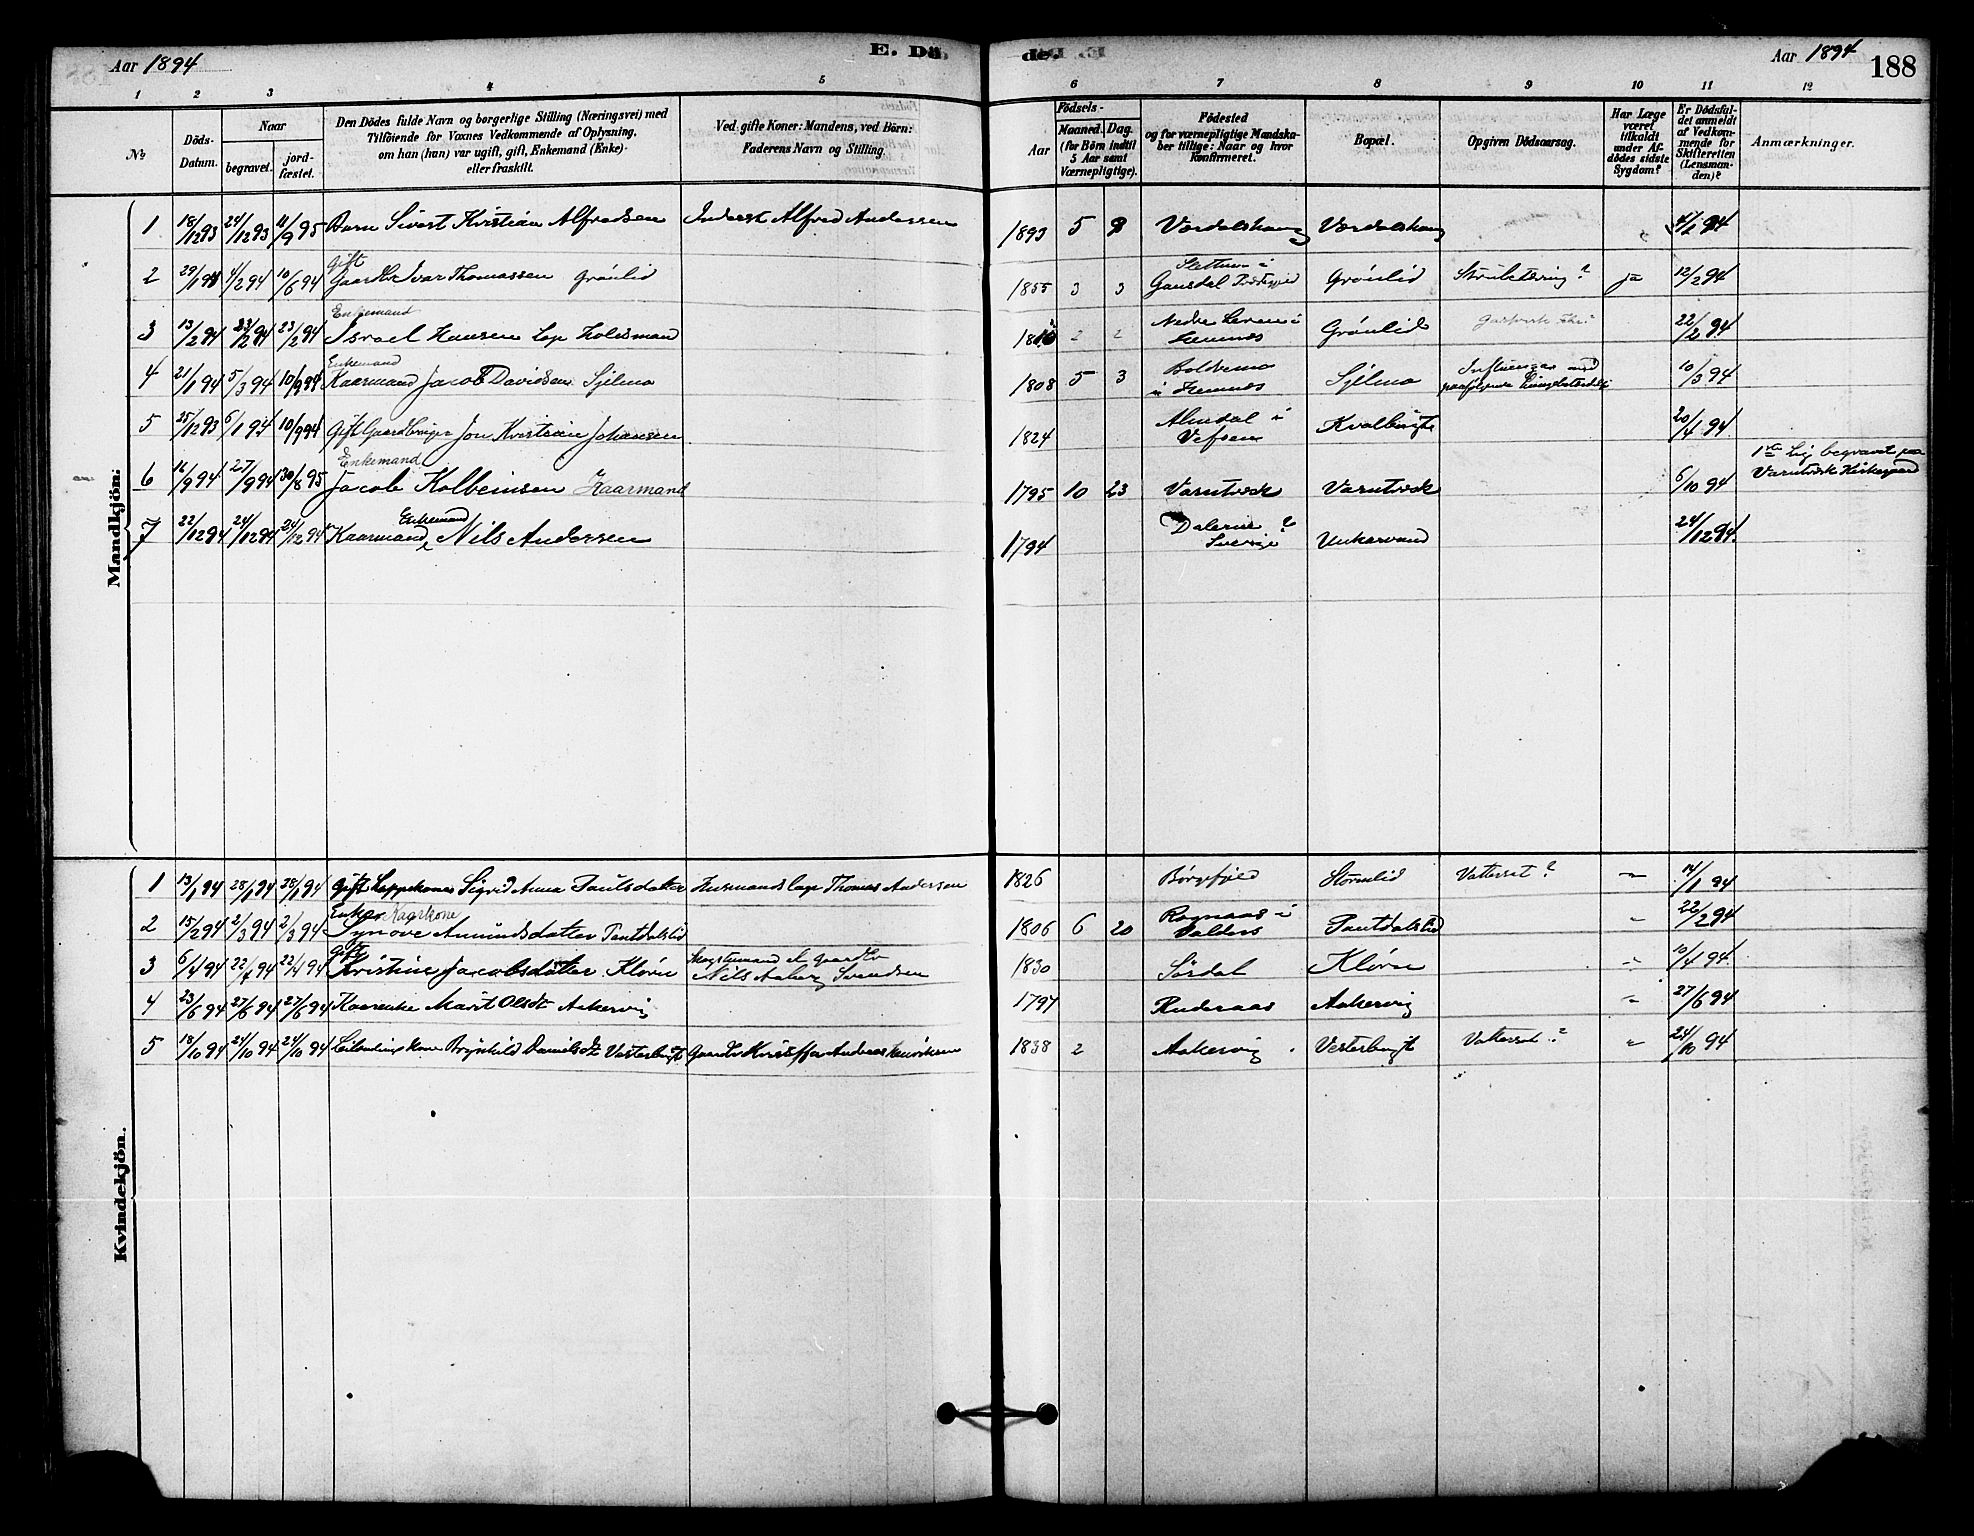 E. Dö de.
Aar 1894
Aar 1894 188
1 2 3 4 5 6 7 8 9 10 11 12
No
Döds-Datum.
Naar
begravet.
jordfæstet.
Den Dödes fulde Navn og borgerlige Stilling (Næringsvei) med
Tilföiende for Voxnes Vedkommende af Oplysning,
om han (hun) var ugift, gift, Enkemand (Enke)
eller fraskilt.
Ved gifte Koner: Mandens, ved Börn:
Faderens Navn og Stilling.
Födsels-
Aar
Maaned. Dag.
(for Börn indtil
5 Aar samt
Værnepligtige).
Födested
og for værnepligtige Mandskaber
tillige: Naar og hvor
Konfirmeret.
Bopæl.
Opgiven Dödsaarsag.
Har Læge
været
tilkaldt
under Afdödes
sidste
Sygdom?
Er Dödsfaldet
anmeldt
af Vedkommende
for
Skifteretten
(Lensmanden)?
Anmærkninger.
Mandkjön.
1 18/12 93 24/12 93 11/9 95 Barn Sivert Kristian Alfredsen Inderst Alfred Andersen 1893 5 8 Vardalshaug Vardalshaug 4/2 94
2 29/1 94 4/2 94 10/6 94 Gift Gaardbr Ivar Thomassen Grönlid 1855 3 3 Gausdal Grönlid Strubetæring? ja 12/2 94
3 13/2 94 23/2 94 23/2 94 Enkemand Israel Hansen Lap 2 2 Nedre Leren i Hemnes Grönlid 22/2 94
4 21/1 94 5/3 94 10/9 94 Enkemand Kaarmand Jacob Davidsen Sjelmo 1808 5 3 Boldermo i Hemnes Sjelmo Influenza med paafölgende 10/3 94
5 25/12 93 6/1 94 10/9 94 Gift Gaardbruger Jon Kristian Johansen 1824 Almdal i Vefsen Kvalbugte 20/4 94
6 16/9 94 27/9 94 30/8 95 Enkemand Jacob Kolbeinsen Kaarmand 1795 10 23 Varntresk Varntresk 6/10 94 1ste Lig begravet paa Varntresk Kirkegaard
7 22/12 94 24/12 94 24/12 94 Kaarmand, Enkemand Nils Andersen 1794 Dalerne? Sverige Unkarvand 24/12 94.
Kvindekjön.
1 13/1 94 28/1 94 28/1 94 Gift Lappekone Sigrid Anna Paulsdatter Husmand Lap Thomas Andersen 1826 Børgefjeld Stormlid Vattersot? " 14/1 94
2 15/2 94 2/3 94 2/3 94 Enke Kaarkone Synove Amundsdatter Tautdalslid 1806 6 20 Rognaas i Valders Tautdalslid " 22/2 94
3 6/4 94 22/4 94 22/4 94 Gift Kristine Jacobsdatter Klovn Nils Aaberg Svendsen 1830 Sørdal Klovn " 10/4 94
4 23/6 94 27/6 94 27/6 94 Kaarenke Marit Olsdt Aakervig 1797 Ruderaas Aakervig " 27/6 94
5 18/10 94 24/10 94 24/10 94 kone Brynhild Danielsdt Vesterbugt Gaardbr Kristoffer Andreas Henriksen 1838 2 Aakervig Vesterbugt Vattersot? " 24/10 94